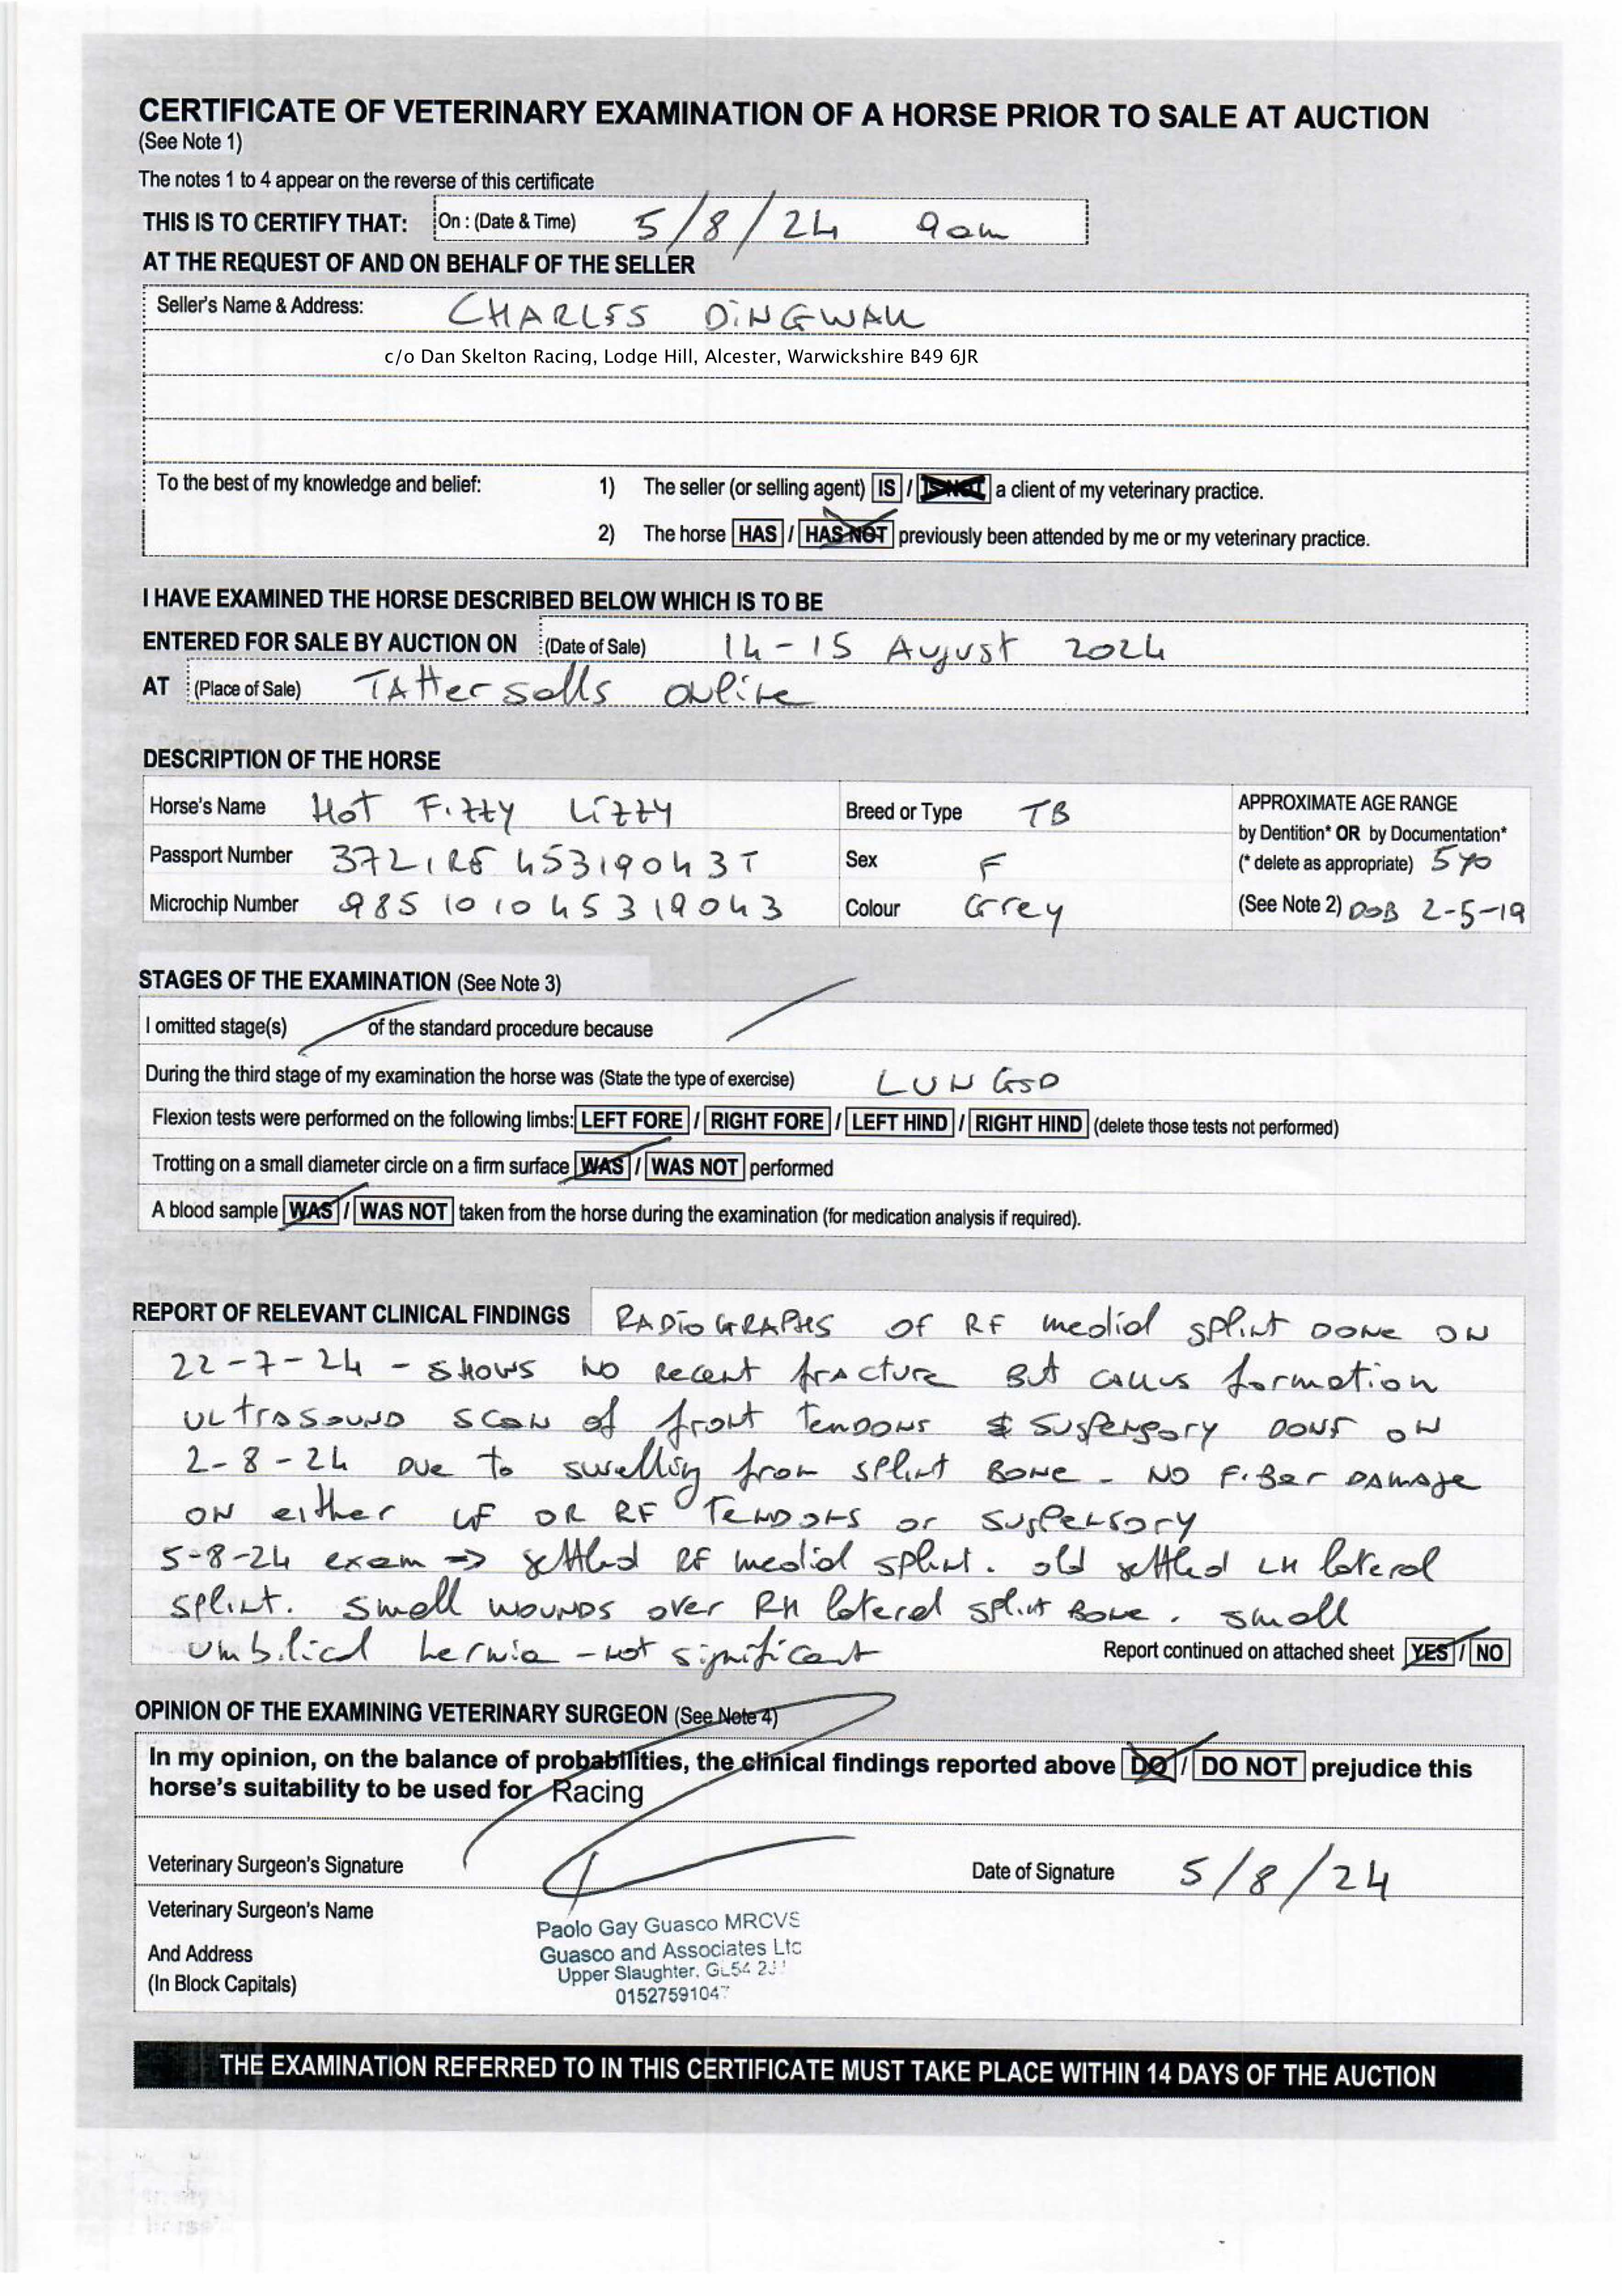 CERTIFICATE OF VETERINARY EXAMINATION OF A HORSE PRIOR TO SALE AT AUCTION
(See Note 1)
The notes 1 to 4 appear on the reverse of this certificate
THIS IS TO CERTIFY THAT: On : (Date & Time) 5/8/24 9am
AT THE REQUEST OF AND ON BEHALF OF THE SELLER
Seller's Name & Address: CHARLES DINGWALL
c/o Dan Skelton Racing, Lodge Hill, Alcester, Warwickshire B49 6JR
To the best of my knowledge and belief: 1) The seller (or selling agent) IS / IS NOT a client of my veterinary practice.
2) The horse HAS / HAS NOT previously been attended by me or my veterinary practice.
I HAVE EXAMINED THE HORSE DESCRIBED BELOW WHICH IS TO BE
ENTERED FOR SALE BY AUCTION ON (Date of Sale) 14-15 August 2024
AT (Place of Sale) TAttersalls online
DESCRIPTION OF THE HORSE
Horse's Name Hot Fizzy Lizzy Breed or Type TB APPROXIMATE AGE RANGE
by Dentition* OR by Documentation*
Passport Number 372IRE45319043T Sex F (* delete as appropriate) 5yo
Microchip Number 985101045319043 Colour Grey (See Note 2) DOB 2-5-19
STAGES OF THE EXAMINATION (See Note 3)
I omitted stage(s) of the standard procedure because
During the third stage of my examination the horse was (State the type of exercise) LUNGED
Flexion tests were performed on the following limbs: LEFT FORE / RIGHT FORE / LEFT HIND / RIGHT HIND (delete those tests not performed)
Trotting on a small diameter circle on a firm surface WAS / WAS NOT performed
A blood sample WAS / WAS NOT taken from the horse during the examination (for medication analysis if required).
REPORT OF RELEVANT CLINICAL FINDINGS RADIOGRAPHS OF RF medial splint DONE ON
22-7-24 - SHOWS NO Recent fracture But callus formation
ULTRASOUND SCAN of front TENDONS & Suspensory DONE ON
2-8-24 Due to swelling from splint Bone - NO Fiber DAMAge
ON either LF OR RF TENDONS or Suspensory
5-8-24 exam => settled RF medial splint. old settled LH lateral
splint. Small wounds over RH lateral splint Bone. small
umbilical hernia - not significant Report continued on attached sheet YES / NO
OPINION OF THE EXAMINING VETERINARY SURGEON (See Note 4)
In my opinion, on the balance of probabilities, the clinical findings reported above DO / DO NOT prejudice this
horse's suitability to be used for Racing
Veterinary Surgeon's Signature Date of Signature 5/8/24
Veterinary Surgeon's Name Paolo Gay Guasco MRCVS
And Address Guasco and Associates Ltd
(In Block Capitals) Upper Slaughter. GL54
01527591047
THE EXAMINATION REFERRED TO IN THIS CERTIFICATE MUST TAKE PLACE WITHIN 14 DAYS OF THE AUCTION